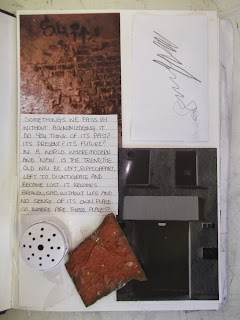 SOMETHINGS WE PASS BY
WITHOUT ACKNOWLEDGING IT
DO YOU THINK OF ITS PAST?
ITS PRESENT? ITS FUTURE?
IN A WORLD WHERE MODERN
AND 'NEW' IS THE TREND, THE
OLD WILL BE LEFT
LEFT TO DISINTIGRATE AND
BECOME LOST. IT BECOMES
BROKEN, SAD, WITHOUT LIFE AND
NO SENSE OF ITS OWN PLACE.
SO WHERE ARE THESE PLACES?